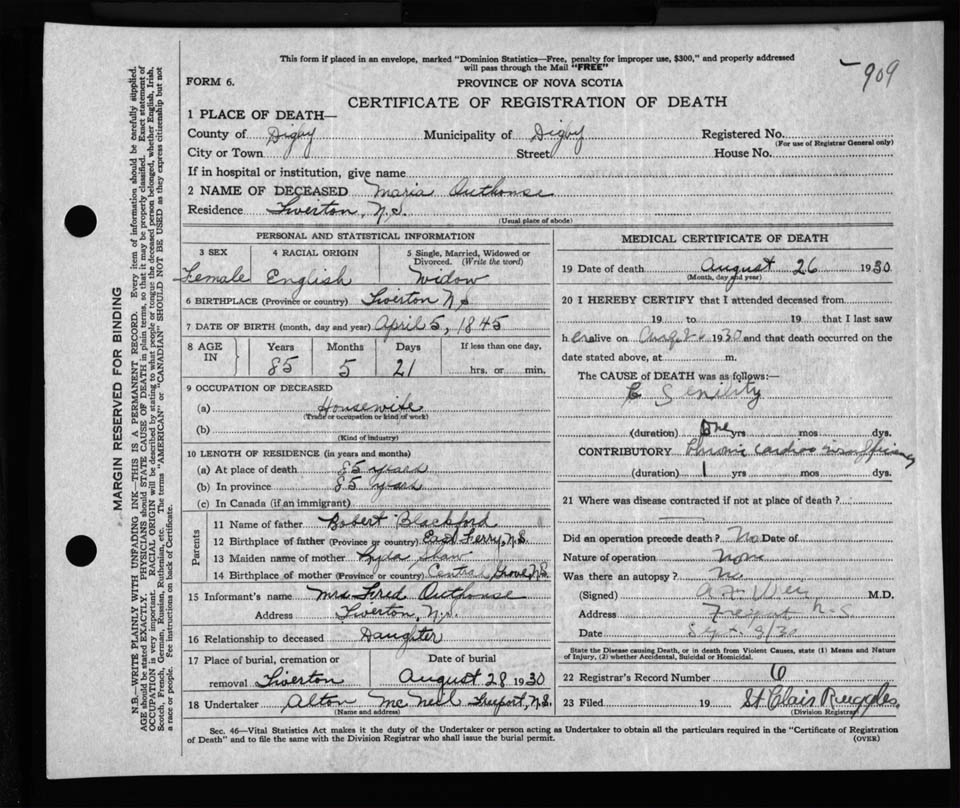 This form if placed in an envelope, marked "Dominion Statistics—Free, penalty for improper use, $300," and properly addressed
will pass through the Mail "FREE"
909
FORM 6.
PROVINCE OF NOVA SCOTIA
CERTIFICATE OF REGISTRATION OF DEATH
1 PLACE OF DEATH—
County of Digby Municipality of Digby Registered No.
(For use of Registrar General only)
City or Town Street House No.
If in hospital or institution, give name
2 NAME OF DECEASED Maria Outhouse
Residence Tiverton, N.S.
(Usual place of abode)
PERSONAL AND STATISTICAL INFORMATION
3 SEX 4 RACIAL ORIGIN 5 Single, Married, Widowed or Divorced. (Write the word)
Female English Widow
6 BIRTHPLACE (Province or country) Tiverton N.S
7 DATE OF BIRTH (month, day and year) April 5, 1845
8 AGE IN Years Months Days If less than one day,
85 5 21 hrs. or min.
9 OCCUPATION OF DECEASED
(a) Housewife
(Trade or occupation or kind of work)
(b)
(Kind of industry)
10 LENGTH OF RESIDENCE (in years and months)
(a) At place of death 85 years
(b) In province 85 years
(c) In Canada (if an immigrant)
Parents
11 Name of father Robert Blackford
12 Birthplace of father (Province or country) East Ferry, N.S.
13 Maiden name of mother Lyda Shaw
14 Birthplace of mother (Province or country) Central Grove, N.S.
15 Informant's name Mrs Fred Outhouse
Address Tiverton, N.S.
16 Relationship to deceased Daughter
17 Place of burial, cremation or removal Tiverton Date of burial August 28 1930
18 Undertaker Alton McNeil Freeport, N.S.
(Name and address)
MEDICAL CERTIFICATE OF DEATH
19 Date of death August 26 1930
(Month, day and year)
20 I HEREBY CERTIFY that I attended deceased from
19 to 19 that I last saw
h er alive on Aug 1930 and that death occurred on the
date stated above, at m.
The CAUSE of DEATH was as follows:—
Senility
(duration) One yrs mos dys.
CONTRIBUTORY Chronic cardiac insufficiency
(duration) 1 yrs mos dys.
21 Where was disease contracted if not at place of death?
Did an operation precede death? No Date of
Nature of operation None
Was there an autopsy? No
(Signed) M.D.
Address Freeport N-S
Date Sept 3/30
State the Disease causing Death, or in death from Violent Causes, state (1) Means and Nature
of Injury, (2) whether Accidental, Suicidal or Homicidal.
22 Registrar's Record Number 6
23 Filed 19 St Clair Ruggles
(Division Registrar)
Sec. 46—Vital Statistics Act makes it the duty of the Undertaker or person acting as Undertaker to obtain all the particulars required in the "Certificate of Registration
of Death" and to file the same with the Division Registrar who shall issue the burial permit.
(OVER)
MARGIN RESERVED FOR BINDING
N.B.—WRITE PLAINLY WITH UNFADING INK—THIS IS A PERMANENT RECORD. Every item of information should be carefully supplied.
AGE should be stated EXACTLY. PHYSICIANS should STATE CAUSE OF DEATH in plain terms, so that it may be properly classified. Exact statement of
OCCUPATION is very important. RACIAL ORIGIN will be described by stating to what people or tongue the deceased person belonged, whether English, Irish,
Scotch, French, German, Russian, Ruthenian, etc. The terms "AMERICAN" or "CANADIAN" SHOULD NOT BE USED as they express citizenship but not
a race or people. Fee instructions on back of Certificate.